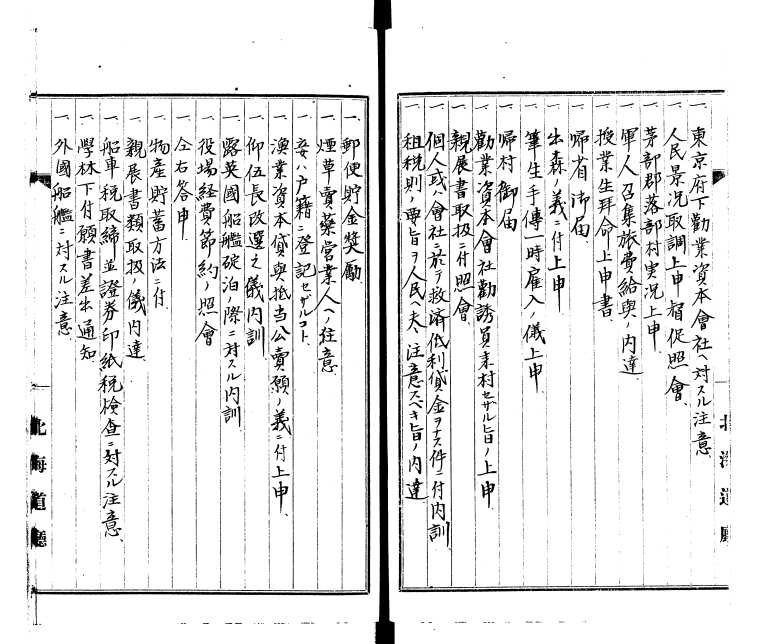 一、東京府下勸業資本會社ヘ対スル注意
一、人民景況取調上申督促照會、
一、茅部郡落部村実况上申
一、軍人召集旅費給與ノ内達
一、授業生拜命上申書、
一、帰省御届
一、出森ノ義ニ付上申
一、筆生手傳一時雇入ノ儀上申、
一、帰村御届
一、勸業資本會社勸誘員来村セザル旨ノ上申
一、親展書取扱ニ付照會、
一、個人或ハ會社ニ於テ救済低利貸金ヲナス件ニ付内訓
一、租税則ノ要旨ヲ人民ヘ夫々注意スベキ旨ノ内達
北海道廳
一、郵便貯金奬勵
一、煙草賣藥營業人ヘノ注意
一、妾ハ戸籍ニ登記セザルコト、
一、漁業資本貸與抵当公賣願ノ義ニ付上申、
一、仰伍長改選之儀内訓
一、露英國船艦碇泊ノ際ニ対スル内訓
一、役場経費節約ノ照會
一、仝右答申、
一、物産貯蓄方法ニ付
一、親展書類取扱ノ儀内達、
一、船車税取締並證券印紙税檢查ニ対スル注意、
一、學林下付願書差出通知
一、外國船艦ニ対スル注意、
北海道廳